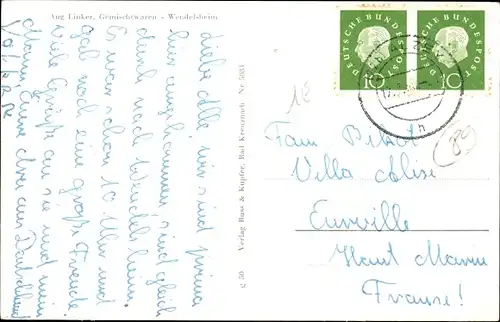 Aug Linker, Gemischtwaren - Wendelsheim
Liebe Alle, wir sind prima
hier angekommen, sind gleich
durch nach Wendelsheim.
Es war schon 10 Uhr und
gab noch eine große Freude
Viele Grüße an sie und mein
Mann, eure drei aus Deutschland
g 50 Verlag Buss & Kupfer, Bad Kreuznach Nr. 5031
DEUTSCHE BUNDESPOST
10
DEUTSCHE BUNDESPOST
10
Fam
Villa
Eurville
Haut Marne
France!